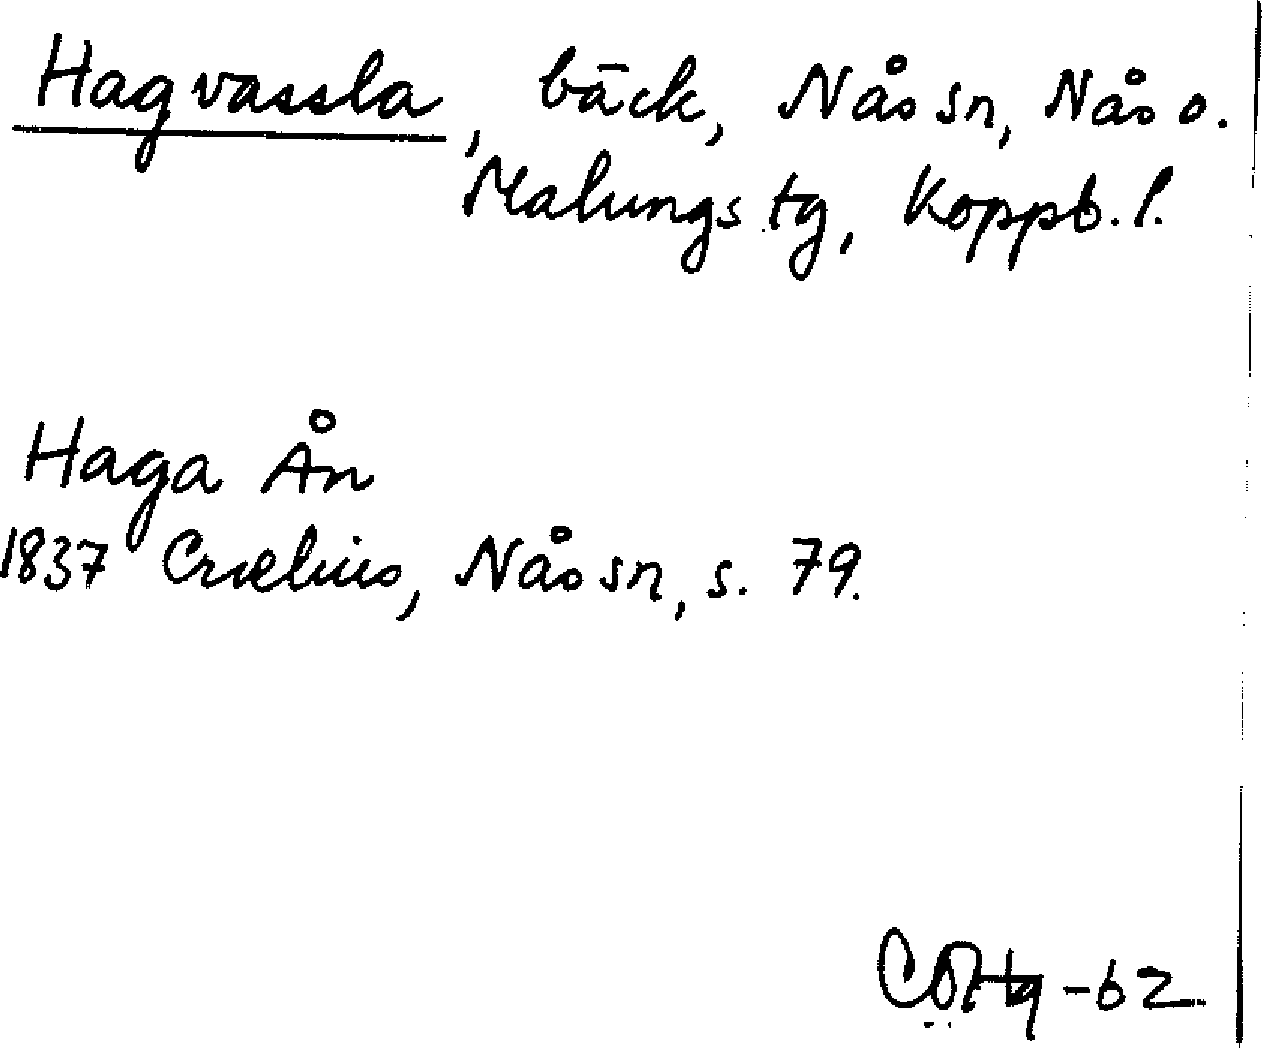 Hagvassla, bäck, Nås sn, Nås o.
Malungs tg, Koppb. l.
Haga Ån
1837 Crælius, Nås sn, s. 79.
-62